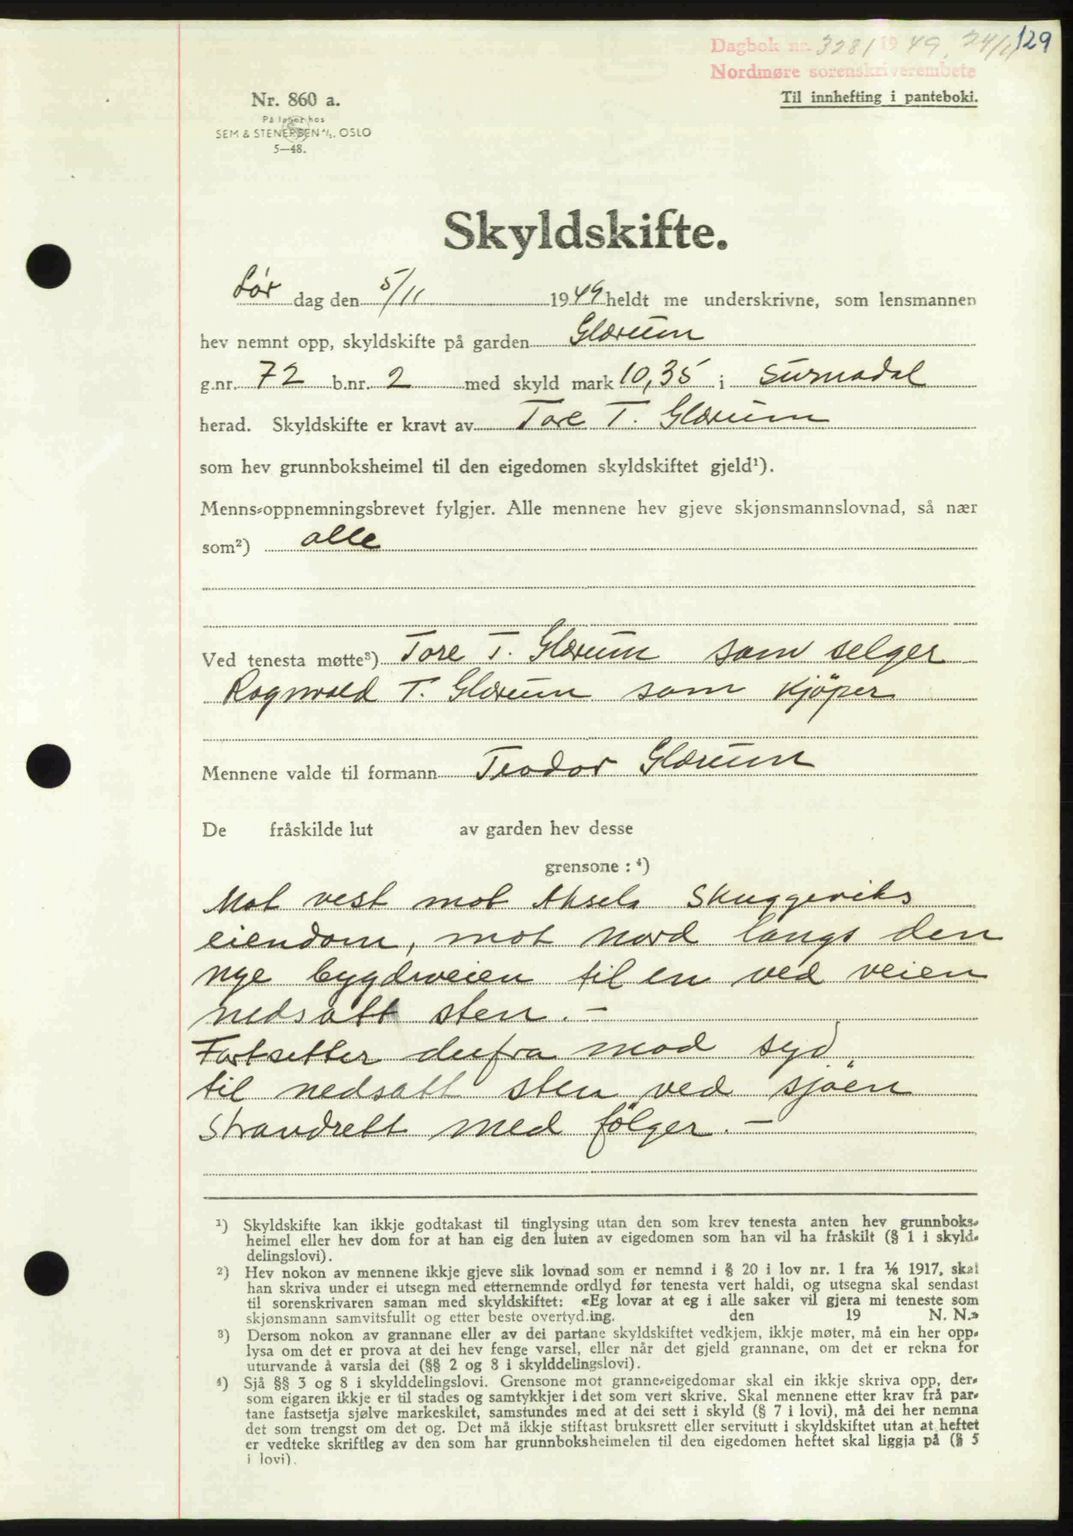 129
Dagbok nr. 3281 1949, 24/11
Nordmøre sorenskriverembete
Til innhefting i panteboki.
Nr. 860 a.
På lager hos
SEM & STENERSEN A/S. OSLO
5—48.
Skyldskifte.
Lør dag den 5/11 1949 heldt me underskrivne, som lensmannen
hev nemnt opp, skyldskifte på garden Glærum
g.nr. 72 b.nr. 2 med skyld mark 10,35 i Surnadal
herad. Skyldskifte er kravt av Tore T. Glærum
som hev grunnboksheimel til den eigedomen skyldskiftet gjeld¹).
Menns-oppnemningsbrevet fylgjer. Alle mennene hev gjeve skjønsmannslovnad, så nær
som²) alle
Ved tenesta møtte³) Tore T. Glærum som selger
Ragnvald T. Glærum som kjöper
Mennene valde til formann Teodor Glærum
De fråskilde lut av garden hev desse
grensone : ⁴)
Mot vest mot Aksels Skuggeviks
eiendom, mot nord langs den
nye bygdeveien til en ved veien
nedsatt sten. —
Fortsetter derfra mod syd
til nedsatt sten ved sjöen
Strandrett med fölger. —
¹) Skyldskifte kan ikkje godtakast til tinglysing utan den som krev tenesta anten hev grunnboks-
heimel eller hev dom for at han eig den luten av eigedomen som han vil ha fråskilt (§ 1 i skyld-
delingslovi).
²) Hev nokon av mennene ikkje gjeve slik lovnad som er nemnd i § 20 i lov nr. 1 fra ⅙ 1917, skal
han skriva under ei utsegn med etternemnde ordlyd før tenesta vert haldi, og utsegna skal sendast
til sorenskrivaren saman med skyldskiftet: «Eg lovar at eg i alle saker vil gjera mi teneste som
skjønsmann samvitsfullt og etter beste overtyding. den 19 N. N.»
³) Dersom nokon av grannane eller av dei partane skyldskiftet vedkjem, ikkje møter, må ein her opp-
lysa om det er prova at dei hev fenge varsel, eller når det gjeld grannane, om det er rekna for
uturvande å varsla dei (§§ 2 og 8 i skylddelingslovi).
⁴) Sjå §§ 3 og 8 i skylddelingslovi. Grensone mot granne-eigedomar skal ein ikkje skriva opp, der-
som eigaren ikkje er til stades og samtykkjer i det som vert skrive. Skal mennene etter krav frå par-
tane fastsetja sjølve markeskilet, samstundes med at dei sett i skyld (§ 7 i lovi), må dei her nemna
det som trengst om det og. Det må ikkje stiftast bruksrett eller servitutt i skyldskiftet utan at heftet
er vedteke skriftleg av den som har grunnboksheimelen til den eigedomen heftet skal liggja på (§ 5
i lovi).